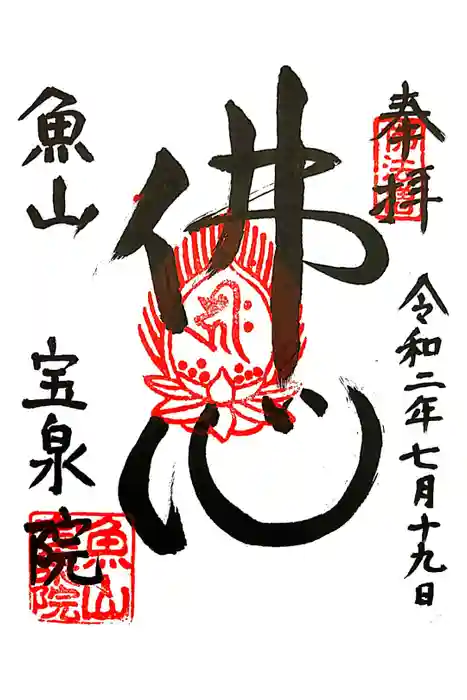 奉拝
令和二年七月十九日
佛心
魚山
宝泉院
魚山